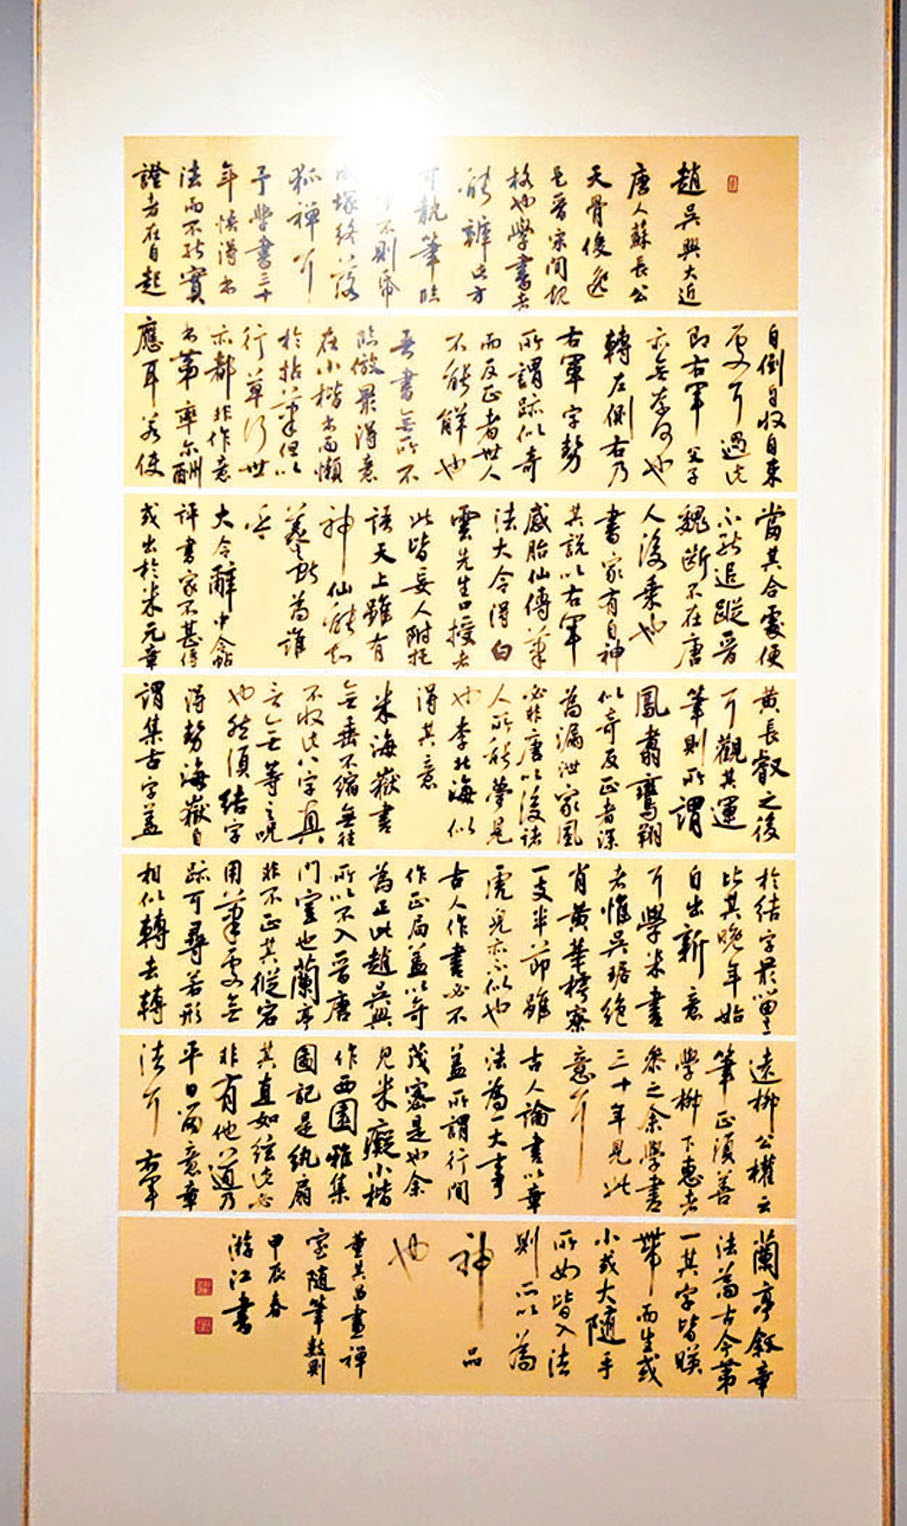 趙吳興大近
唐人蘇長公
天骨俊逸
是晉宋間規
格也學書者
能辨此方
可執筆臨
不則帋
成塚終落
狐禅耳
予學書三十
年悟得書
法而不能實
證者在自起
自倒自收自束
處耳過此
即右軍父子
亦無奈何也
轉左側右乃
右軍字勢
所謂跡似奇
而反正者世人
不能解也
吾書無所不
臨倣最得意
在小楷書而懶
於拈筆但以
行草行世
亦都非作意
書第率尔酬
應耳若使
當其合處便
不能追蹤晉
魏斷不在唐
人後乘也
書家有自神
其說以右軍
感胎仙傳筆
法大令得白
雲先生口授者
此皆妄人附托
語天上雖有
神仙能知
羲獻為誰
乎
大令辭中令帖
評書家不甚傳
或出於米元章
黃長睿之後
可觀其運
筆則所謂
鳳翥鸞翔
似奇反正者深
為漏泄家風
必非唐以後諸
人所能夢見
也李北海似
得其意
米海嶽書
無垂不縮無往
不收此八字真
言無等之呪
也然須結字
得勢海嶽自
謂集古字蓋
於結字最留意
比其晚年始
自出新意
耳學米書
者惟吳琚絕
肖黃華樗寮
一支半節雖
虎兒亦不似也
古人作書必不
作正局蓋以奇
為正此趙吳興
所以不入晉唐
門室也蘭亭
非不正其縱宕
用筆處無
跡可尋若形
相似轉去轉
遠柳公權云
筆正須善
學柳下惠者
參之余學書
三十年見此
意耳
古人論書以章
法為一大事
蓋所謂行間
茂密是也余
見米癡小楷
作西園雅集
圖記是紈扇
其直如弦此必
非有他道乃
平日留意章
法耳右軍
蘭亭敘章
法為古今第
一其字皆映
帶而生或
小或大隨手
所如皆入法
則所以為
神品
也
董其昌畫禅
室隨筆數則
甲辰春
游江書